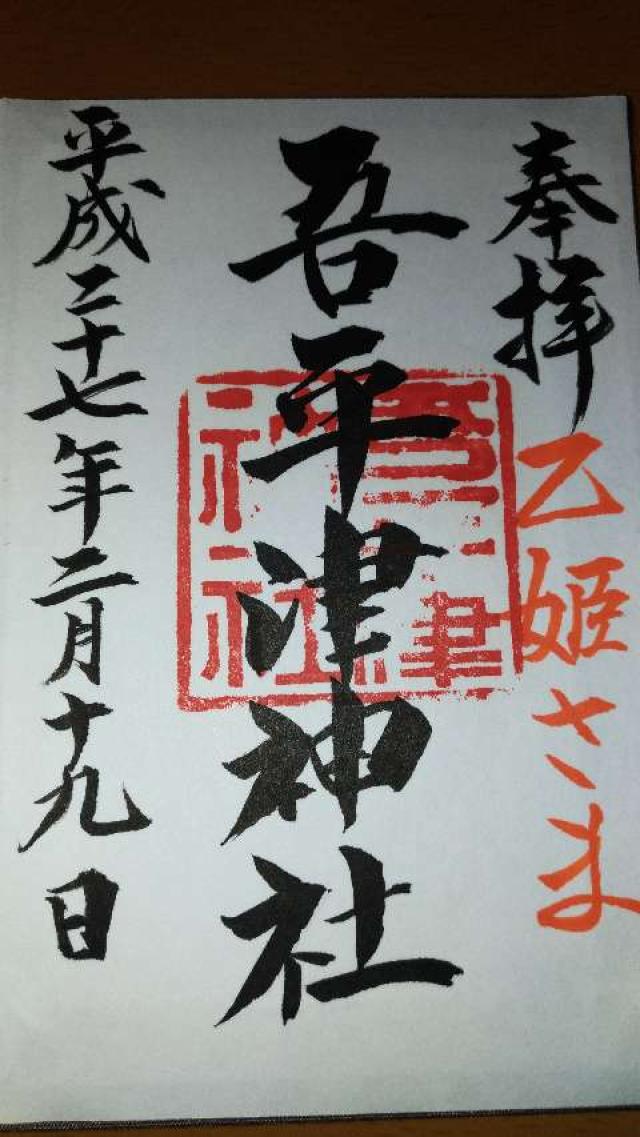 奉拝
乙姫さま
吾平津神社
平成二十七年二月十九日